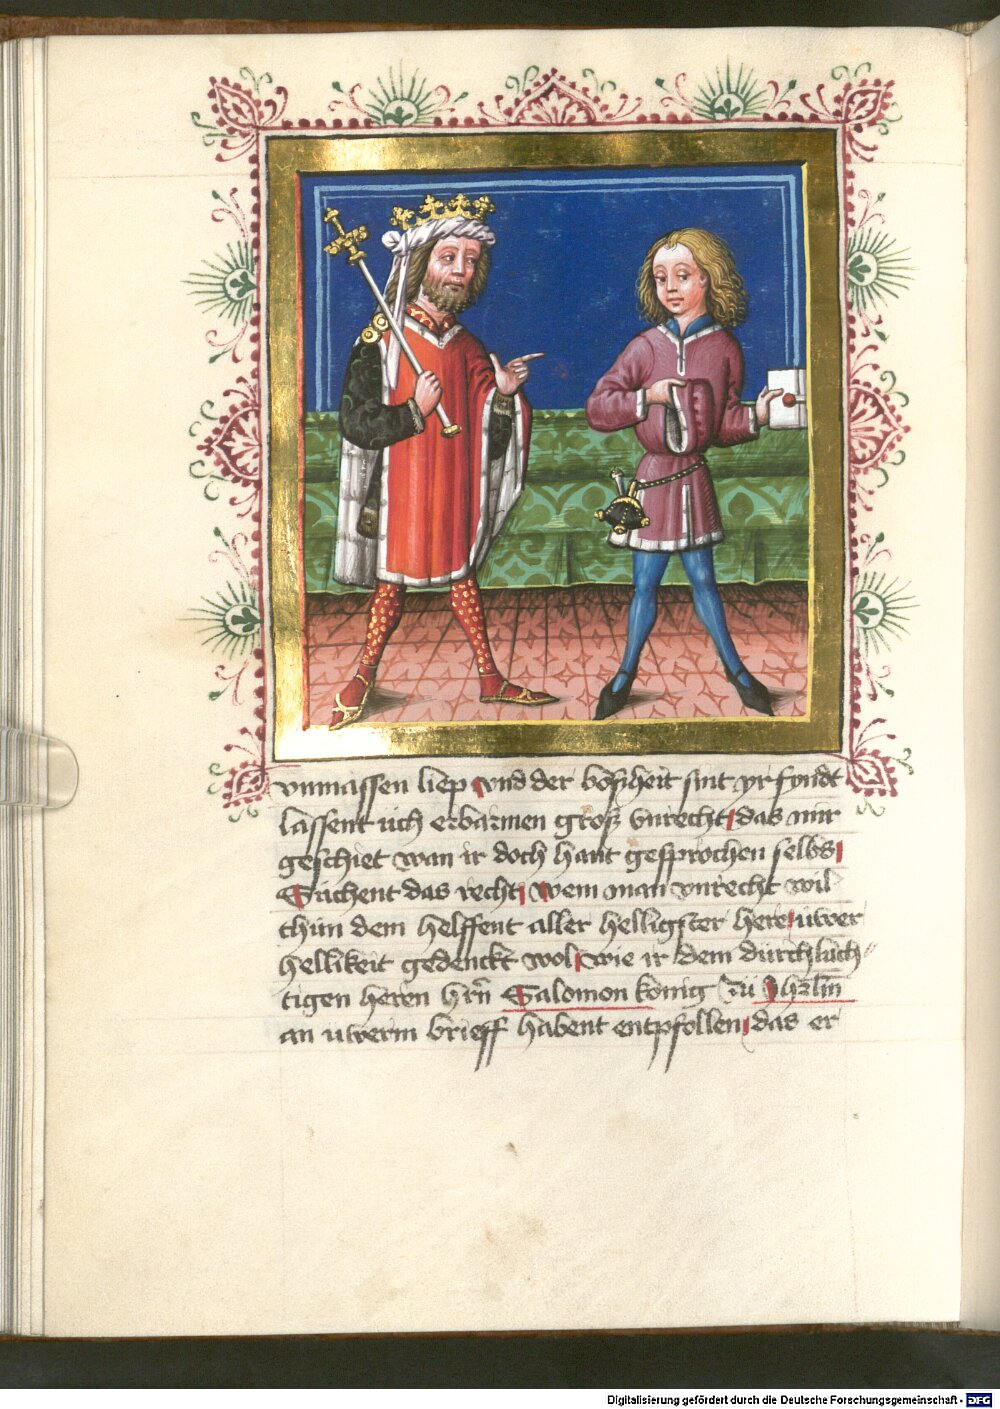 vnmassen liep vnd der boszheit sint yr fyndt
lassent üch erbarmen grosz vnrecht das mir
geschiet wan ir doch hant gesprochen selbs
Süchent das recht wem man vnrecht wil
thün dem helffent aller helligster here uwer
hellikeit gedenckt wol wie ir dem dürchlüch
tigen heren hrñ Salomon konig zü Jhrlm̄
an uwerm brieff habent entpfollen das er
Digitalisierung gefördert durch die Deutsche Forschungsgemeinschaft - DFG